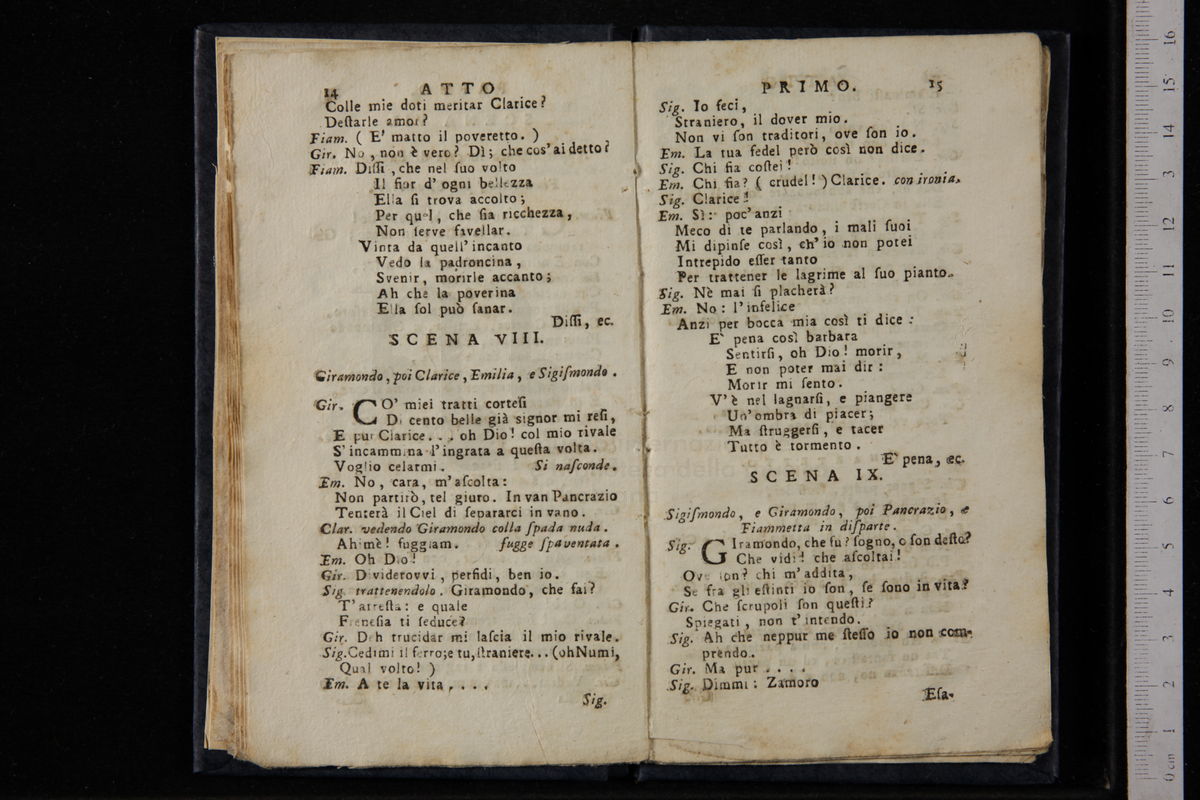 14 ATTO
Colle mie doti meritar Clarice?
Deſtarle amor?
Fiam. ( E' matto il poveretto. )
Gir. No, non è vero? Dì; che cos' ai detto?
Fiam. Diſſi, che nel ſuo volto
Il fior d' ogni bellezza
Ella ſi trova accolto;
Per quel, che ſia ricchezza,
Non ſerve favellar.
Vinta da quell' incanto
Vedo la padroncina,
Svenir, morirle accanto;
Ah che la poverina
Ella ſol può ſanar.
Diſſi, ec.
SCENA VIII.
Giramondo, poi Clarice, Emilia, e Sigiſmondo.
Gir. CO' miei tratti corteſi
Di cento belle già signor mi reſi,
E pur Clarice... oh Dio! col mio rivale
S' incammina l' ingrata a queſta volta.
Voglio celarmi. Si naſconde.
Em. No, cara, m' aſcolta:
Non partirò, tel giuro. In van Pancrazio
Tenterà il Ciel di ſepararci in vano.
Clar. vedendo Giramondo colla ſpada nuda.
Ahimè! fuggiam. fugge ſpaventata.
Em. Oh Dio!
Gir. Dividerovvi, perfidi, ben io.
Sig. trattenendolo. Giramondo, che fai?
T' arreſta: e quale
Freneſia ti ſeduce?
Gir. Deh trucidar mi laſcia il mio rivale.
Sig. Cedimi il ferro; e tu, ſtraniere... (oh Numi,
Qual volto! )
Em. A te la vita....
Sig.
PRIMO. 15
Sig. Io feci,
Straniero, il dover mio.
Non vi ſon traditori, ove ſon io.
Em. La tua fedel però così non dice.
Sig. Chi fia coſtei!
Em. Chi fia? ( crudel! ) Clarice. con ironia.
Sig. Clarice!
Em. Sì: poc' anzi
Meco di te parlando, i mali ſuoi
Mi dipinſe così, ch' io non potei
Intrepido eſſer tanto
Per trattener le lagrime al ſuo pianto.
Sig. Nè mai ſi placherà?
Em. No: l' infelice
Anzi per bocca mia così ti dice:
E' pena così barbara
Sentirſi, oh Dio! morir,
E non poter mai dir:
Morir mi ſento.
V' è nel lagnarſi, e piangere
Un' ombra di piacer;
Ma ſtruggerſi, e tacer
Tutto è tormento.
E' pena, ec.
SCENA IX.
Sigiſmondo, e Giramondo, poi Pancrazio, e
Fiammetta in diſparte.
Sig. GIramondo, che fu? ſogno, o ſon deſto?
Che vidi! che aſcoltai!
Ove ſon? chi m' addita,
Se fra gli eſtinti io ſon, ſe ſono in vita?
Gir. Che ſcrupoli ſon queſti?
Spiegati, non t' intendo.
Sig. Ah che neppur me ſteſſo io non com-
prendo.
Gir. Ma pur....
Sig. Dimmi: Zamoro
Eſa-